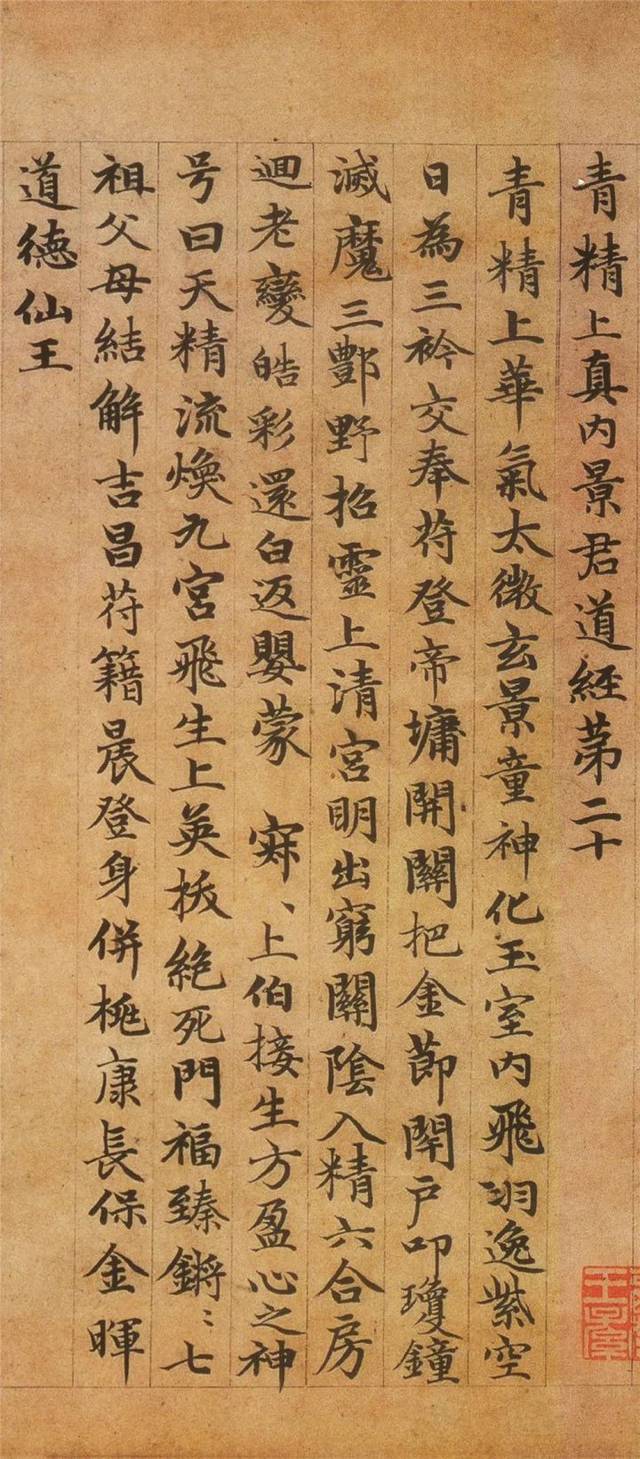 青精上真内景君道經苐二十
青精上華氣太微玄景童神化玉室内飛羽逸紫空
日為三衿交奉苻登帝墉開關把金莭闁户叩瓊鐘
滅魔三酆野招靈上清宮明出窮關陰入精六合房
迴老變皓彩還白返嬰蒙 寂、上伯接生方盈心之神
号曰天精流煥九宮飛生上英抜絶死門福臻鏘〻七
祖父母結解吉昌苻籍晨登身併桃康長保金暉
道德仙王